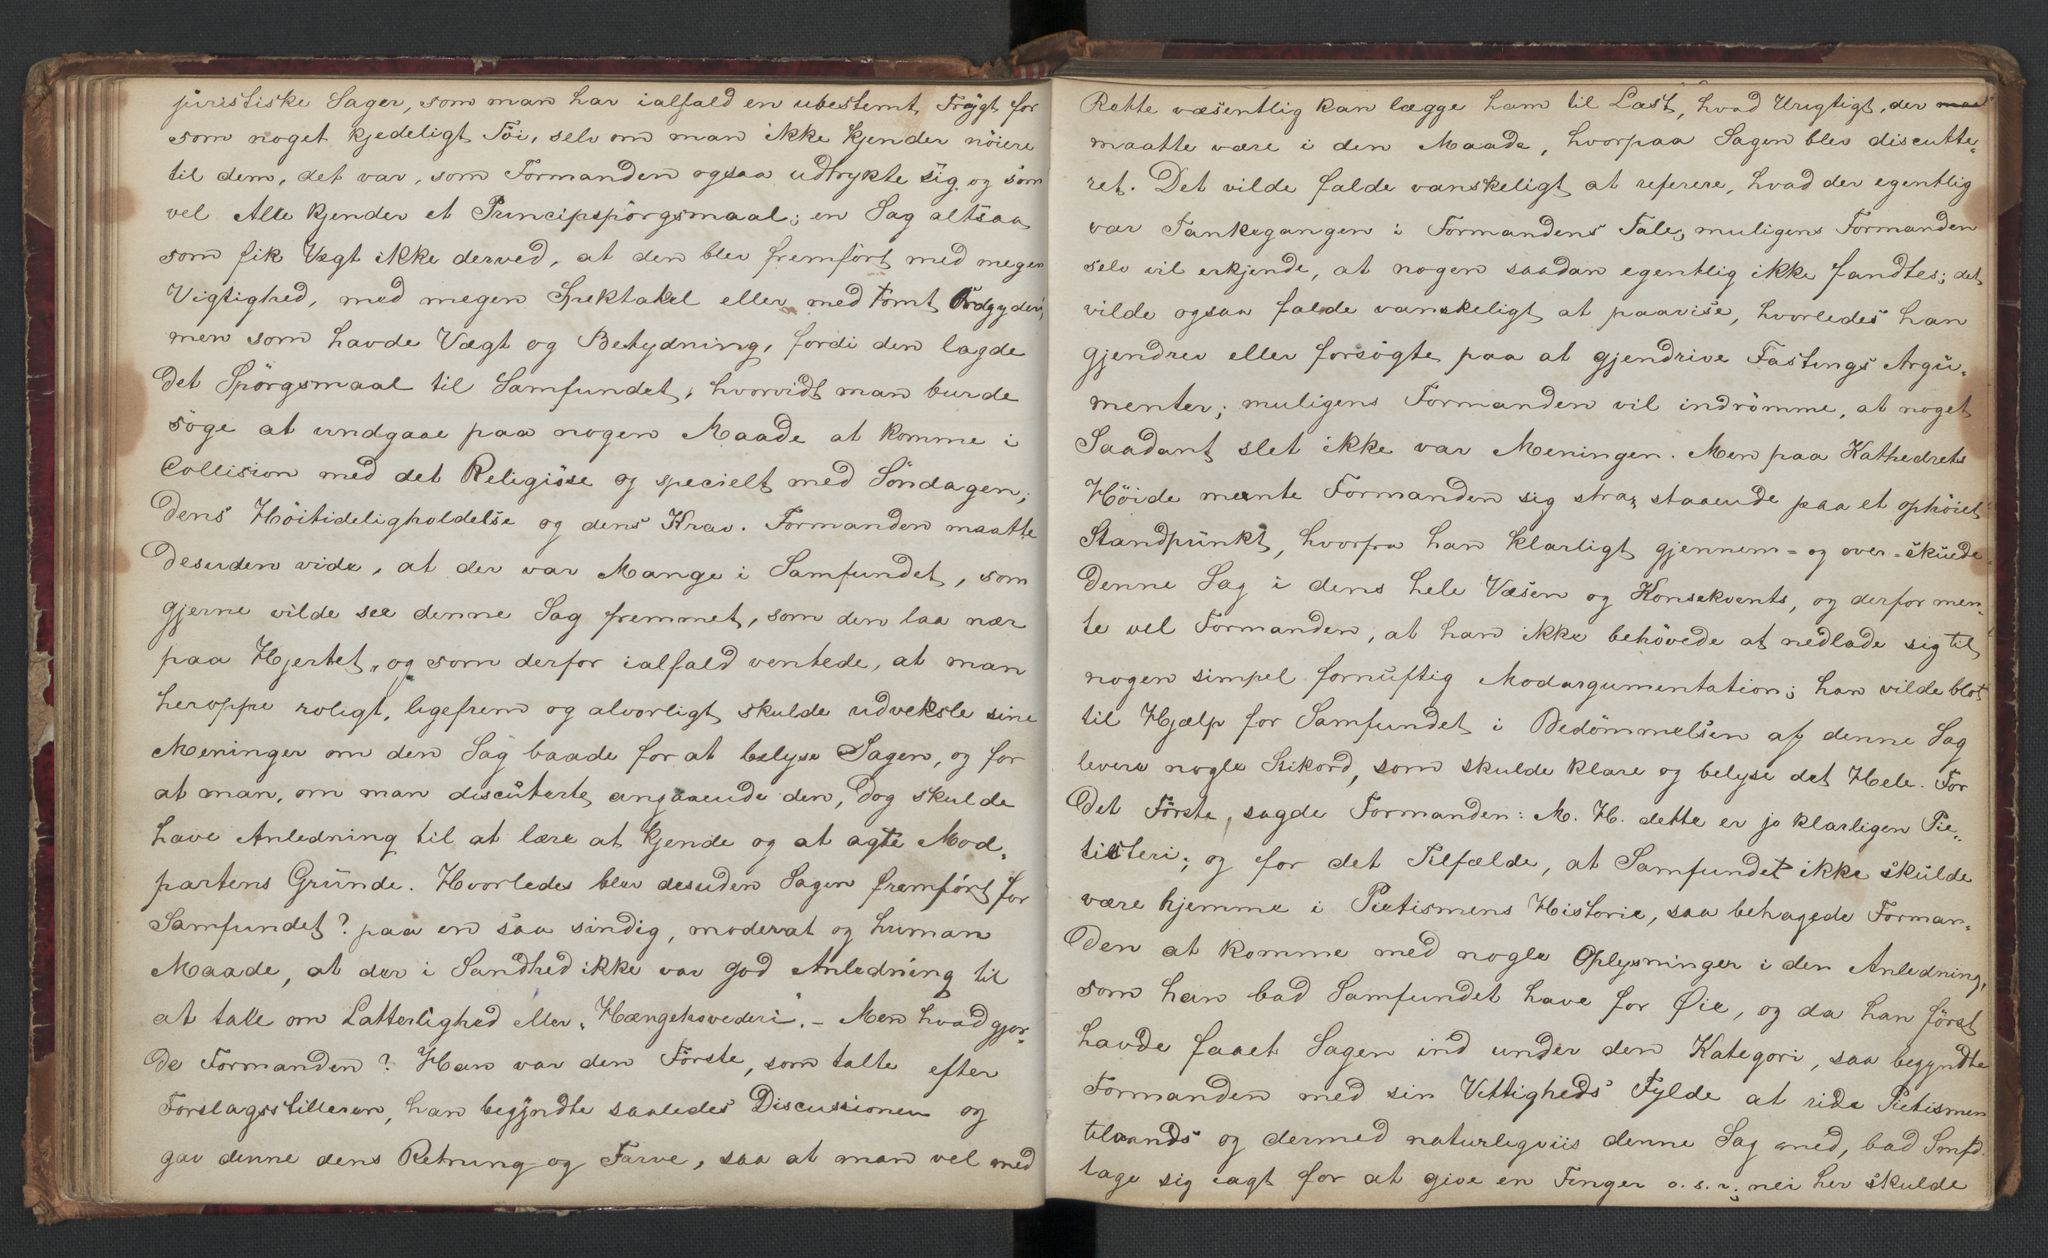 juristiske Sager, som man har ialfald en ubestemt Frygt for
som noget kjedeligt Töi, selv om man ikke kjender nöiere
til dem, det var, som Formanden ogsaa udtrykte sig og som
vel Alle kjender et Principspörgsmaal; en Sag altsaa
som fik Vægt ikke derved, at den blev fremfört med megen
Vigtighed, med megen Spektakel eller med tomt Ordgyderi,
men som havde Vægt og Betydning, fordi den lagde
det Spörgsmaal til Samfundet, hvorvidt man burde
söge at undgaae paa nogen Maade at komme i
Collision med det Religiöse og specielt med Söndagen,
dens Höitideligholdelse og dens Krav. Formanden maatte
desuden vide, at der var Mange i Samfundet, som
gjerne vilde see denne Sag fremmet, som den laa nær
paa Hjertet, og som derfor ialfald ventede, at man
heroppe roligt, ligefrem og alvorligt skulde udveksle sine
Meninger om den Sag baade for at belyse Sagen, og for
at man, om man discuterte angaaende den, dog skulde
have Anledning til at lære at kjende og at agte Mod-
partens Grunde. Hvorledes blev desuden Sagen fremfört for
Samfundet? paa en saa sindig, moderat og human
Maade, at der i Sandhed ikke var god Anledning til
at tale om Latterlighed eller "Hængehovederi". - Men hvad gjor-
de Formanden? Han var den Förste, som talte efter
Forslagsstilleren, han begyndte saaledes Discussionen og
gav denne dens Retning og Farve, saa at man vel med
Rette væsentlig kan lægge ham til Last, hvad Urigtigt, der maa
maatte være i den Maade, hvorpaa Sagen blev discutte-
ret. Det vilde falde vanskeligt at referere, hvad der egentlig
var Tankegangen i Formandens Tale; muligens Formanden
selv vil erkjende, at nogen saadan egentlig ikke fandtes; det
vilde ogsaa falde vanskeligt at paavise, hvorledes han
gjendrev eller forsögte paa at gjendrive Fastings Argu-
menter; muligens Formanden vil indrömme, at noget
Saadant slet ikke var Meningen. Men paa Kathedrets
Höide mente Formanden sig strax staaende paa et ophöiet
Standpunkt, hvorfra han klarligt gjennem- og over-skuede
denne Sag i dens hele Væsen og Konsekvents, og derfor men-
te vel Formanden, at han ikke behövede at nedlade sig til
nogen simpel fornuftig Modargumentation; han vilde blot
til Hjælp for Samfundet i Bedömmelsen af denne Sag
levere nogle Stikord, som skulde klare og belyse det Hele. For
det Förste, sagde Formanden: M. H. dette er jo klarligen Pie-
tisteri; og for det Tilfælde, at Samfundet ikke skulde
være hjemme i Pietismens Historie, saa behagede Forman-
den at komme med nogle Oplysninger i den Anledning,
som han bad Samfundet have for Øie, og da han först
havde faaet Sagen ind under den Kategori, saa begyndte
Formanden med sin Vittigheds Fylde at ride Pietismen
tilvands og dermed naturligviis denne Sag med, bad Smfd.
tage sig iagt for at give en Finger o. s. v.; nei her skulde